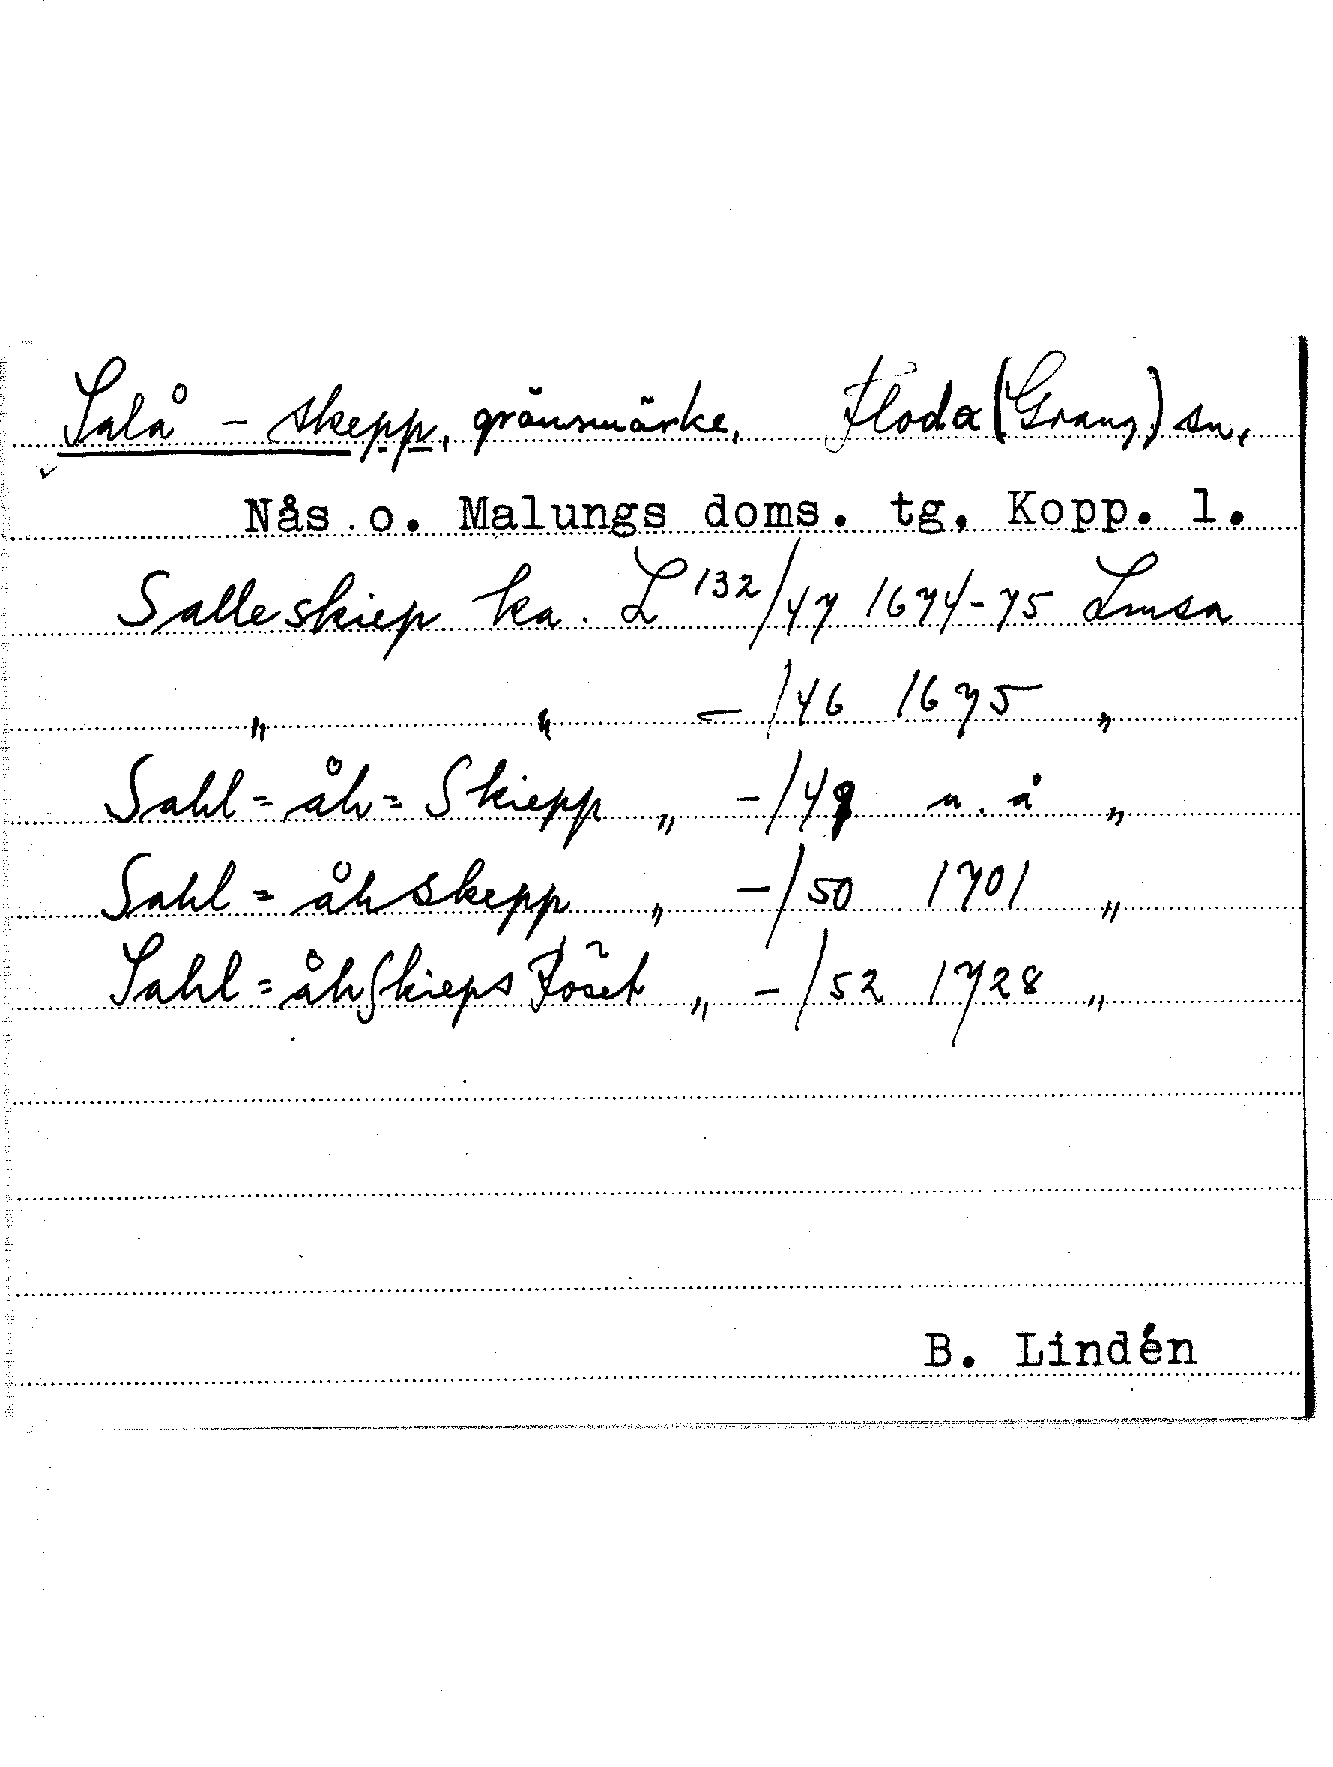 Salå - skepp, gränsmärke, Floda (Grang) sn,
Nås o. Malungs doms. tg, Kopp. l.
Salleskiep ka. L 132/47 1674-75 Lmsa
" " - /46 1675 "
Sahl=åh=Skiepp " -/49 u.å "
Sahl=åhskepp " -/50 1701 "
Sahl=åhSkieps Föset " -/52 1728 "
B. Lindén